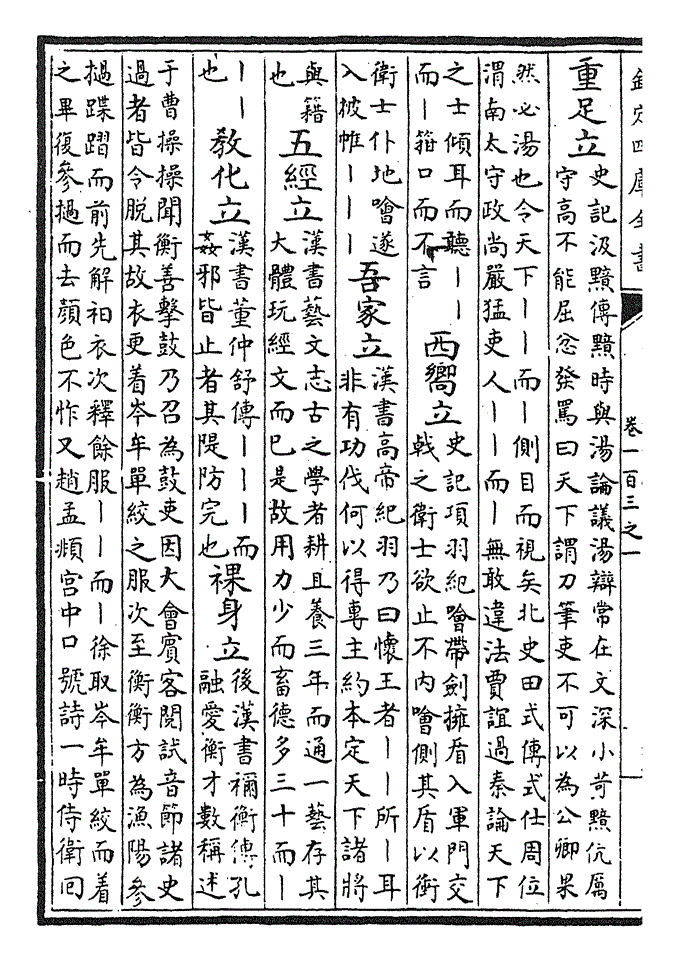 欽定四庫全書
卷一百三之一
重足立
史記汲黯傳黯時與湯論議湯辯常在文深小苛黯伉厲
守高不能屈忿發罵曰天下謂刀筆吏不可以為公卿果
然必湯也令天下丨丨而丨側目而視矣北史田式傳式仕周位
渭南太守政尚嚴猛吏人丨丨而丨無敢違法賈誼過秦論天下
之士傾耳而聽丨丨
而丨箝口而不言
西嚮立
史記項羽紀噲帶劍擁盾入軍門交
戟之衛士欲止不内噲側其盾以衝
衛士仆地噲遂
入披帷丨丨丨
吾家立
漢書高帝紀羽乃曰懷王者丨丨所丨耳
非有功伐何以得專主約本定天下諸將
與籍
也
五經立
漢書藝文志古之學者耕且養三年而通一藝存其
大體玩經文而已是故用力少而畜德多三十而丨
丨丨
也
教化立
漢書董仲舒傳丨丨丨而
姦邪皆止者其隄防完也
裸身立
後漢書禰衡傳孔
融愛衡才數稱述
于曹操操聞衡善擊鼓乃召為鼓吏因大會賓客閱試音節諸史
過者皆令脫其故衣更着岑牟單絞之服次至衡衡方為漁陽參
撾蹀而前先解衵衣次釋餘服丨丨而丨徐取岑牟單絞而着
之畢復參撾而去顔色不怍又趙孟頫宮中口號詩一時侍衛回